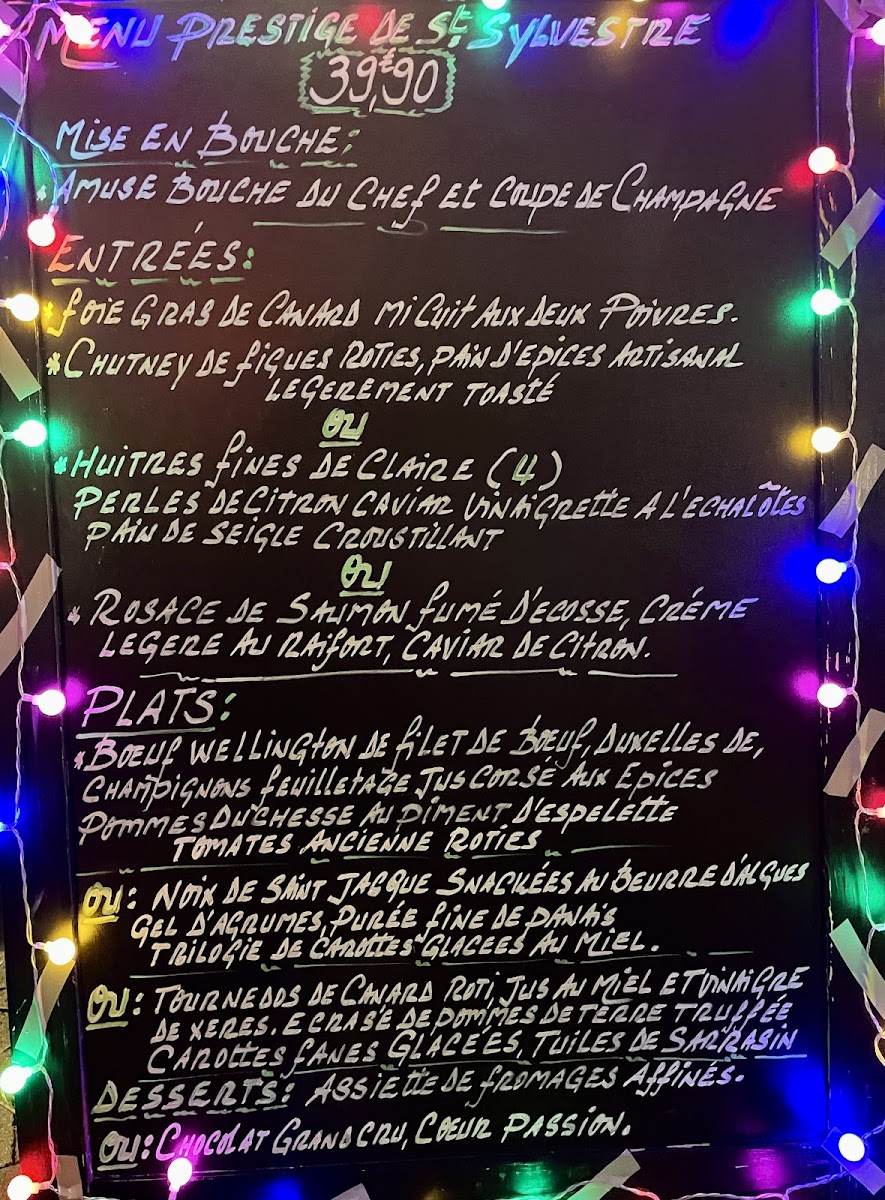 MENU PRESTIGE DE St SYLVESTRE
39,€90
MISE EN BOUCHE:
* AMUSE BOUCHE DU CHEF ET COUPE DE CHAMPAGNE
ENTRÉES:
* FOIE GRAS DE CANARD MI CUIT AUX DEUX POIVRES.
* CHUTNEY DE FIGUES ROTIES, PAIN D'EPICES ARTISANAL
LEGEREMENT TOASTÉ
OU
* HUITRES FINES DE CLAIRE (4)
PERLES DE CITRON CAVIAR VINAIGRETTE A L'ECHALÔTES
PAIN DE SEIGLE CROUSTILLANT
OU
* ROSACE DE SAUMON FUMÉ D'ECOSSE, CRÉME
LEGERE AU RAIFORT, CAVIAR DE CITRON.
PLATS:
* BOEUF WELLINGTON DE FILET DE BOEUF, DUXELLES DE,
CHAMPIGNONS FEUILLETAGE JUS CORSÉ AUX EPICES
POMMES DUCHESSE AU PIMENT D'ESPELETTE
TOMATES ANCIENNE ROTIES
OU: NOIX DE SAINT JACQUE SNACKÉES AU BEURRE D'ALGUES
GEL D'AGRUMES, PURÉE FINE DE PANAIS
TRILOGIE DE CAROTTES GLACEES AU MIEL.
OU: TOURNEDOS DE CANARD ROTI, JUS AU MIEL ET VINAIGRE
DE XERES. ECRASÉ DE POMMES DE TERRE TRUFFÉE
CAROTTES FANES GLACÉES, TUILES DE SARRASIN
DESSERTS: ASSIETTE DE FROMAGES AFFINÉS.
OU: CHOCOLAT GRAND CRU, COEUR PASSION.